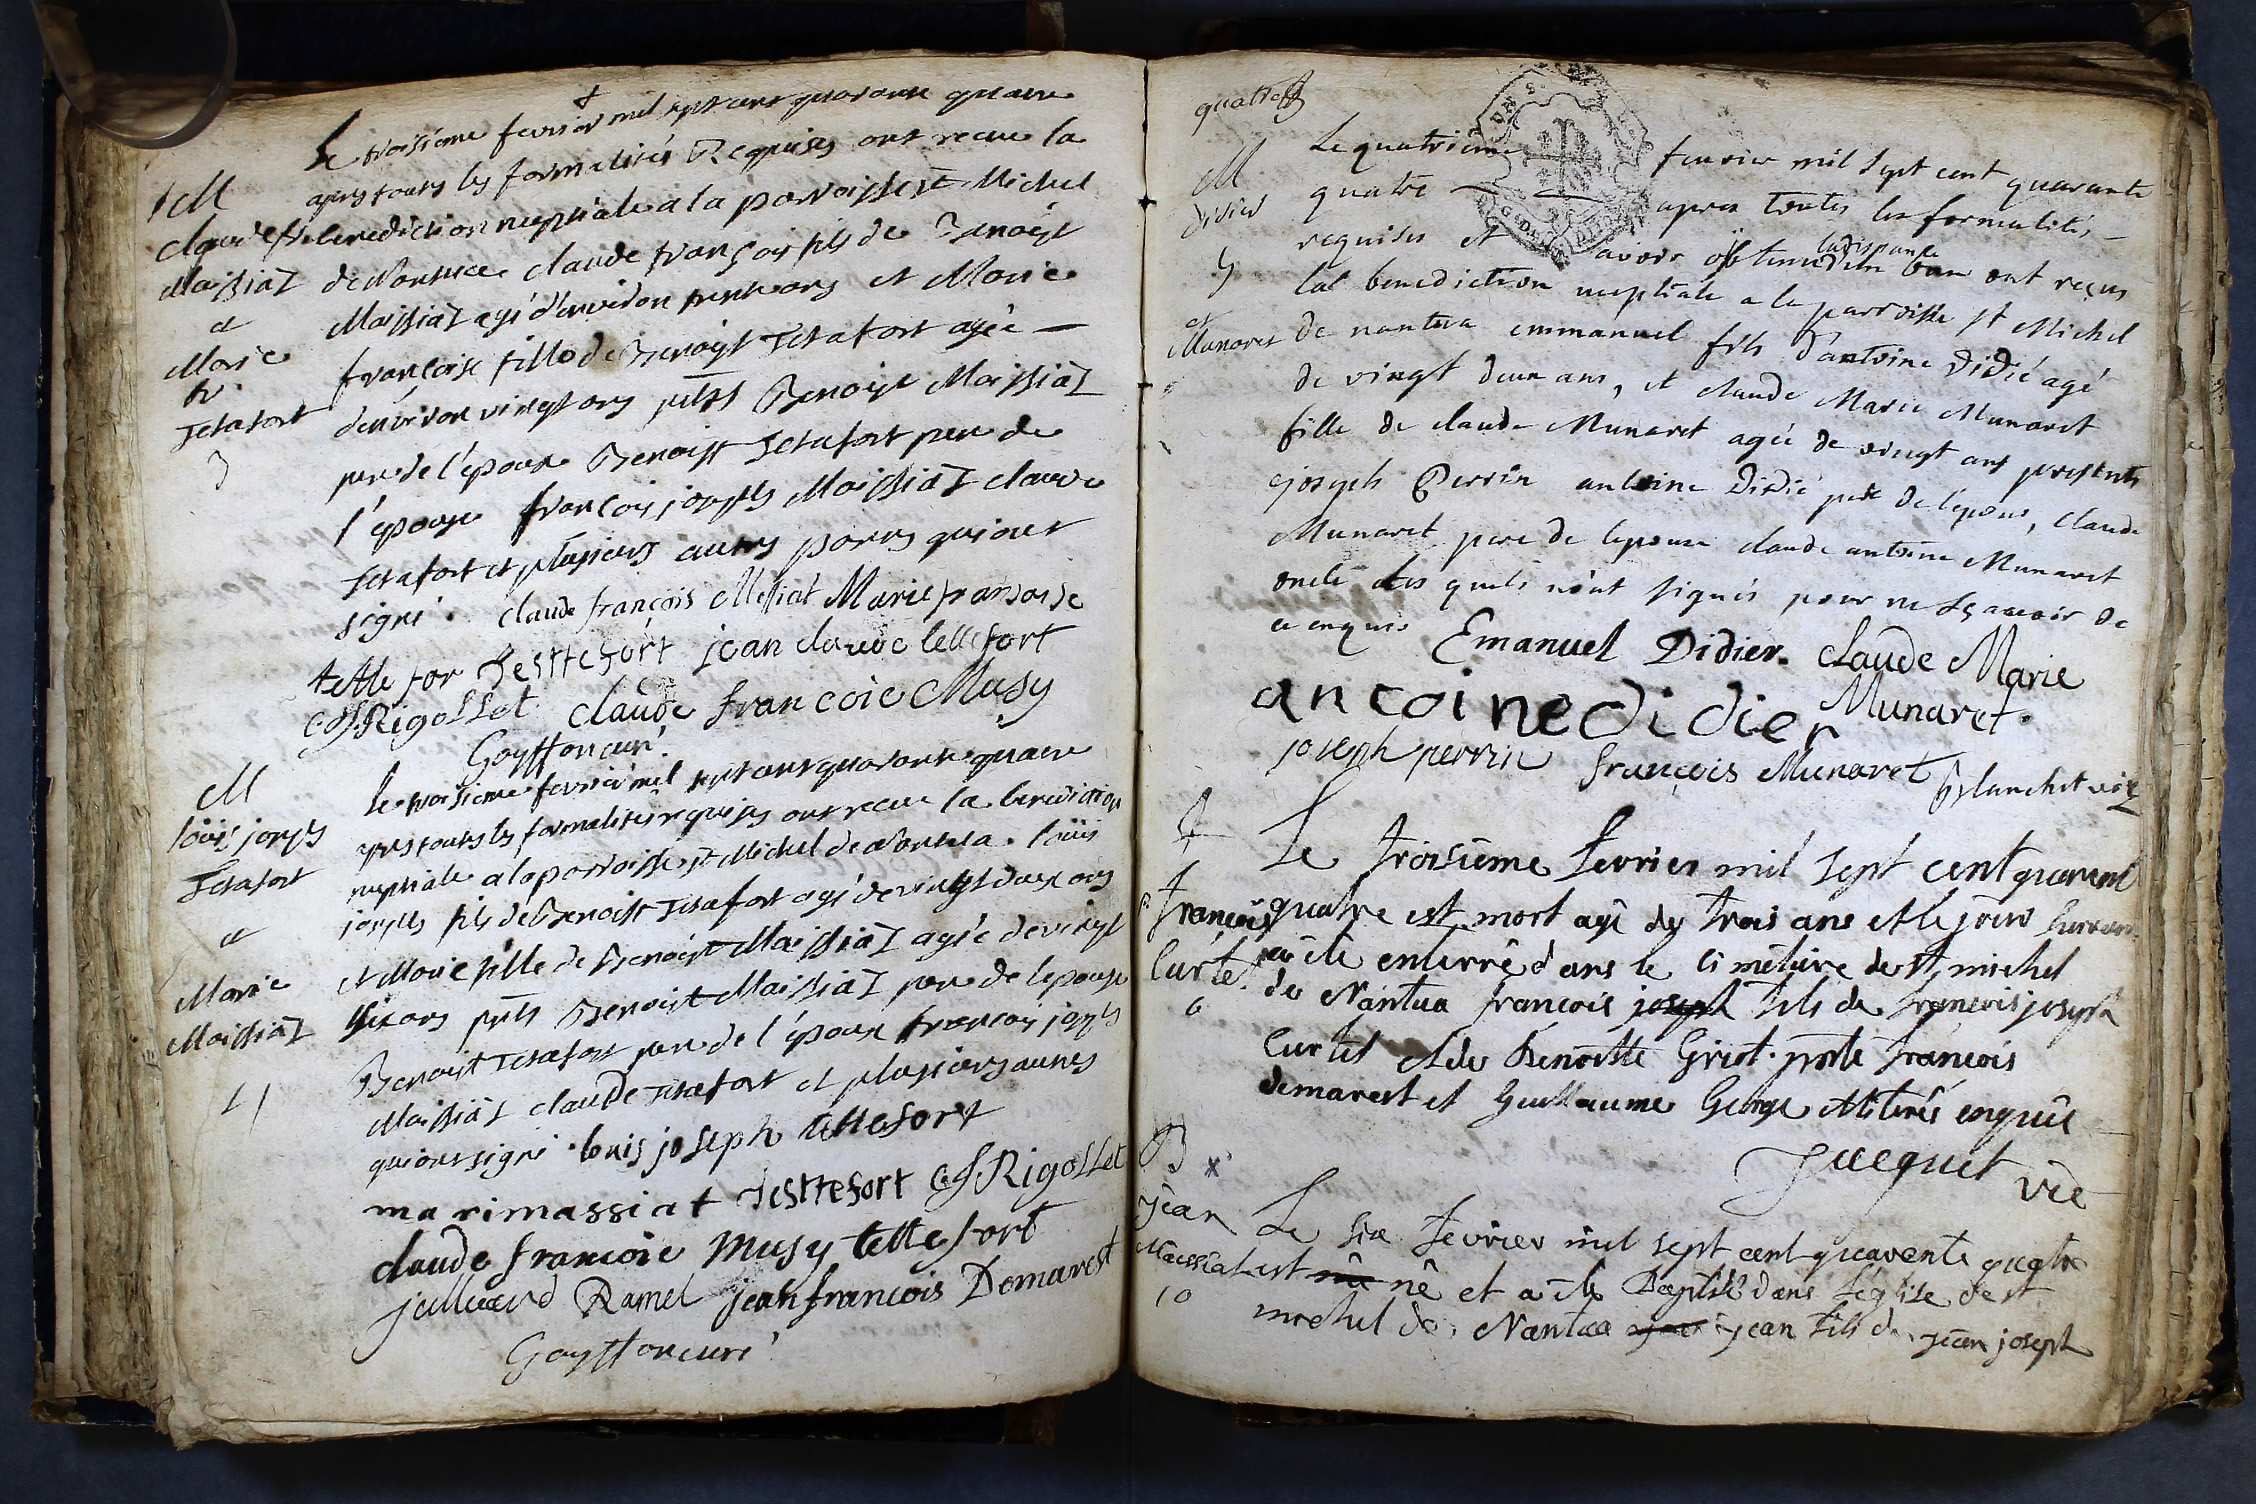 Le troisieme fevrier mil sept cent quarante quatre
apres toutes les formalités Requises ont recue la
benediction nuptiale a la parroisse st Michel
de Nantua claude françois fils de Benoist
Maissiat agé d'environ trente ans et Marie
françoise fille de Benoist Tetafort agée
d'environ vingt ans Benoist Maissiat
pere de l'epoux Benoist Tetafort pere de
l'epouse françois joseph Maissiat claude
Tetafort et plusieurs autres parens qui ont
signé. claude françois Messiat Marie fransoise
tette for Testtefort jean claude tettefort
Rigollet claude francoie Musy
Goyffon curé
M
Claude fr.
Maissiat
et
Marie
fr.
Tetafort
3
Le troisieme fevrier mil sept cent quarante quatre
apres toutes les formalités requises ont recue la benediction
nuptiale a la parroisse st Michel de Nantua. loüis
joseph fils de Benoist Tetafort agé de vingt deux ans
et Marie fille de Benoist Maissiat agée de vingt
six ans Benoist Maissiat pere de lepouse
Benoist Tetafort pere de l'epoux francois joseph
Maissiat claude Tetafort et plusieurs autres
qui ont signé. louis joseph tettefort
marimassiat Testtefort Rigollet
claude francoie Musy tettefort
julliard Ramel jean francois Domarest
Goyffon curé
M
loüis joseph
Tetafort
et
Marie
Maissiat
4
quatre
Le quatriême fevrier mil sept cent quarante
quatre apres toutes les formalités
requises et avoir obtenu ladispance ont reçus
lal benediction nuptiale a la parroisse st Michel
de nantua emmanuel fils d'antoine Didié agé
de vingt deux ans, et claude Marie Munaret
fille de claude Munaret agée de vingt ans presents
joseph Perrin antoine Didié pere de lépoux, claude
Munaret pere de lepouse claude antoine Munaret
oncle les quels n'ont signés pour ne sçavoir de
ce enquis Emanuel Didier. claude Marie
Munaret.
antoine didier
joseph perrin françois Munaret Blanchet vic
M
Didier
5
et
Munaret
Le troisiême fevrier mil sept cent quarent
quatre est mort agé de trois ans et le jour
a été enterré dans le cimetiere de st michel
de Nantua francois joseph fils de francois joseph
Curtet et de Benoitte Griot. françois
demarest et Guillaume George illiterés enquis
Jacquet vic
françois
Curtet
6
Le six fevrier mil sept cent quarente quatre
est né et a été Baptisé dans l'église de st
michel de Nantua jean fils de jean joseph
B
jean
Maissiat
10